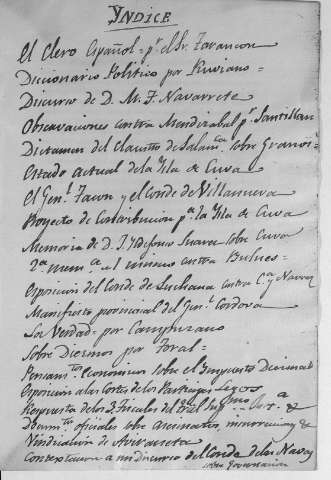 YNDICE
El Clero Español = pr. el Sr. Tarancon
Diccionario Politico por Ruviano =
Discurso de D. M. F. Navarrete
Observaciones contra Mendizabal pr. Santillan
Dictamen del Claustro de Salamca. sobre Granos =
Estado actual de la Ysla de Cuva
El Genl. Tacon y el Conde de Villanueva
Proyecto de Contribucion pa. la Ysla de Cuva
Memoria de D. Yldefonso Suarez sobre Cuva
2a. mema. el mismo contra
Esposicion del Conde de Luchana contra Ca. y Narvaez
Manifiesto provincial del Genl. Cordova
Sol Verdad = por Campuzano
Sobre Diezmos por Toral =
Pensamtos. economicos sobre el Ympuesto Decimal
Esposicion a las Cortes de los Participes Legos
Respuesta de los 3 Fiscales del Tral Sup
Documtos. oficiales sobre asesinatos, &
Vindicacion de Aviraneta
Contextacion a un discurso del Conde de las Navas
sobre Governacion